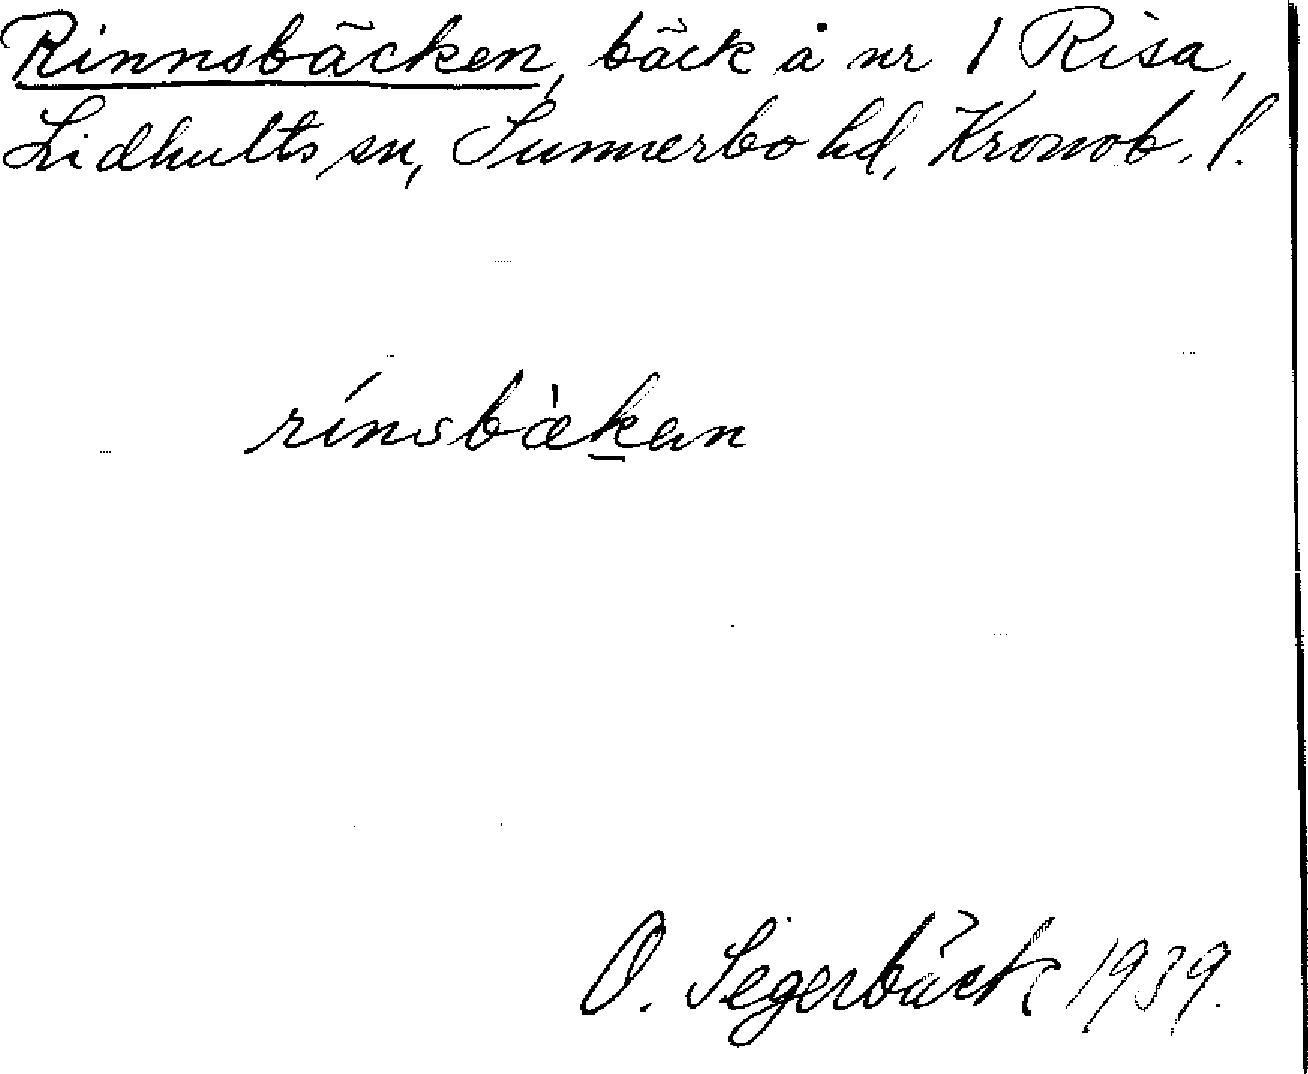 Rinnsbäcken, bäck å nr 1 Risa,
Lidhults sn, Sunnerbo hd, Kronob. l.
rínsbæ̀kan
O. Segerbäck 1939.